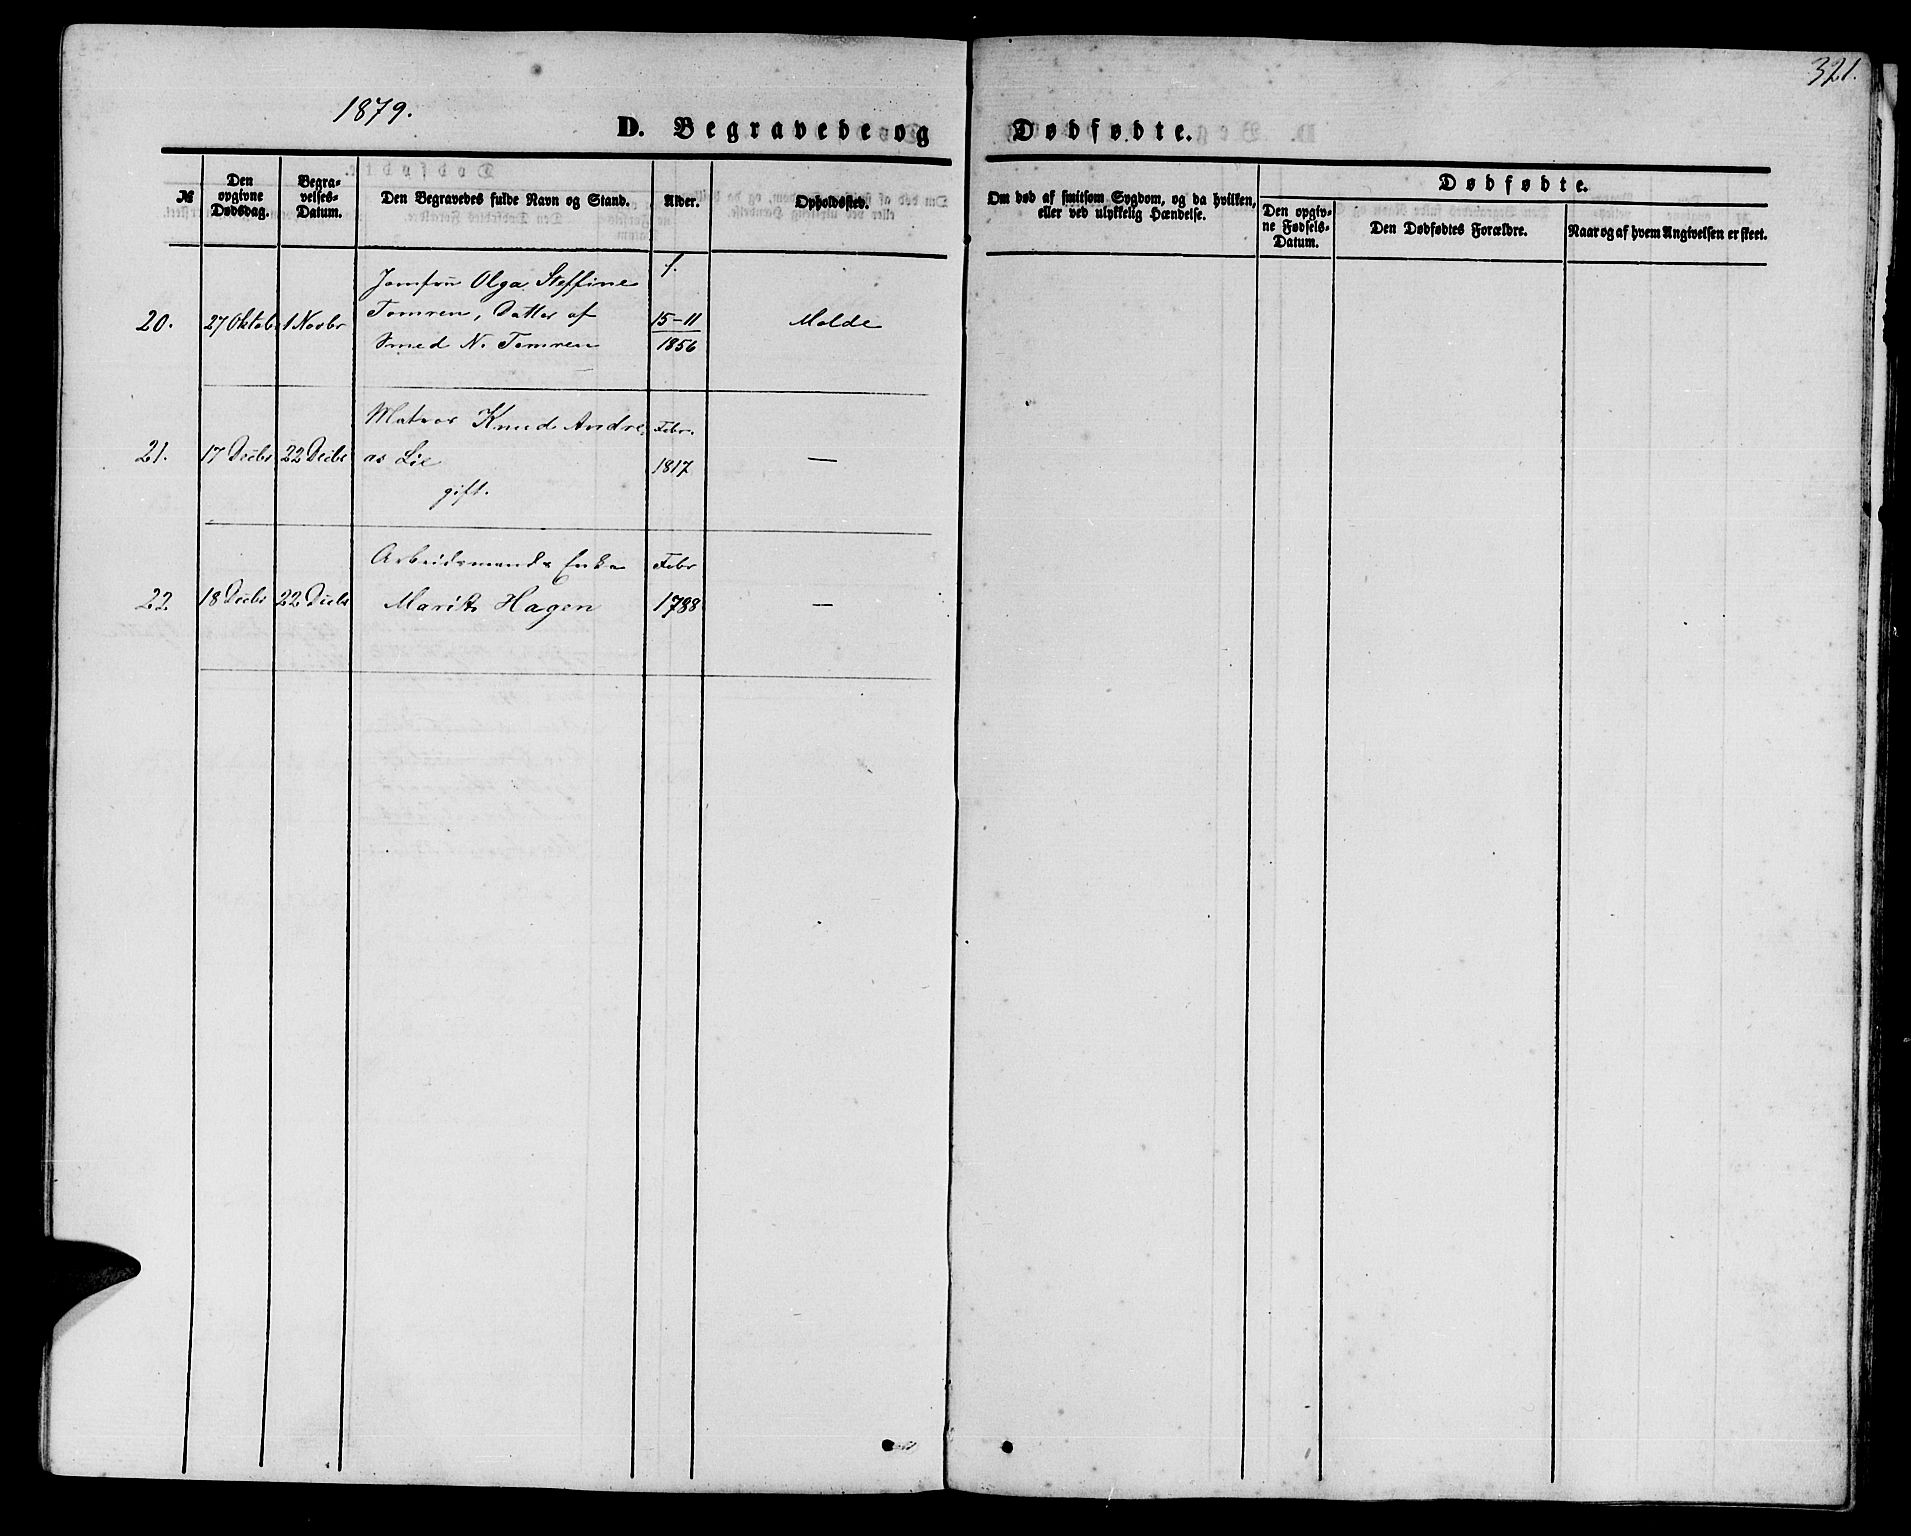 1879.
321.
D. Begravede og Dødfødte.
№
Den opgivne Dødsdag.
Begravelses-Datum.
Den Begravedes fulde Navn og Stand.
Alder.
Opholdssted.
Om død af smitsom Sygdom, og da hvilken, eller ved ulykkelig Hændelse.
Dødfødte.
Den opgivne Fødsels-Datum.
Den Dødfødtes Forældre.
Naar og af hvem Angivelsen er skeet.
20. 27 Oktob. 1 Novbr
Jomfru Olga Steffine
Tomren, Datter af
Smed N. Tomren
f.
15-11
1856
Molde
21. 17 Decbr 22 Decbr
Matros Knud Andre
as Lie
gift.
Febr.
1817
—
22 18 Decbr 22 Decbr
Arbeidsmands Enke
Marit Hagen
Febr
1788
—